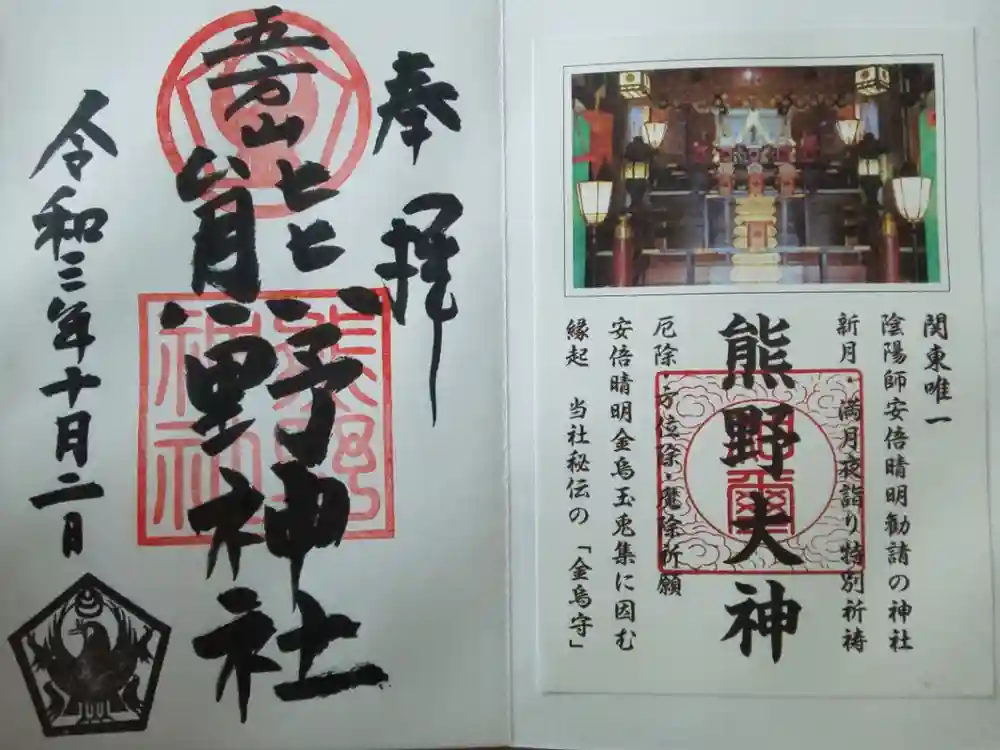 関東唯一
陰陽師安倍晴明勧請の神社
新月・満月夜詣り特別祈祷
熊野大神
厄除・方位除・魔除祈願
安倍晴明金烏玉兎集に因む
縁起　当社秘伝の「金烏守」
奉拝
五方山
熊野神社
熊野
神社
令和三年十月二日